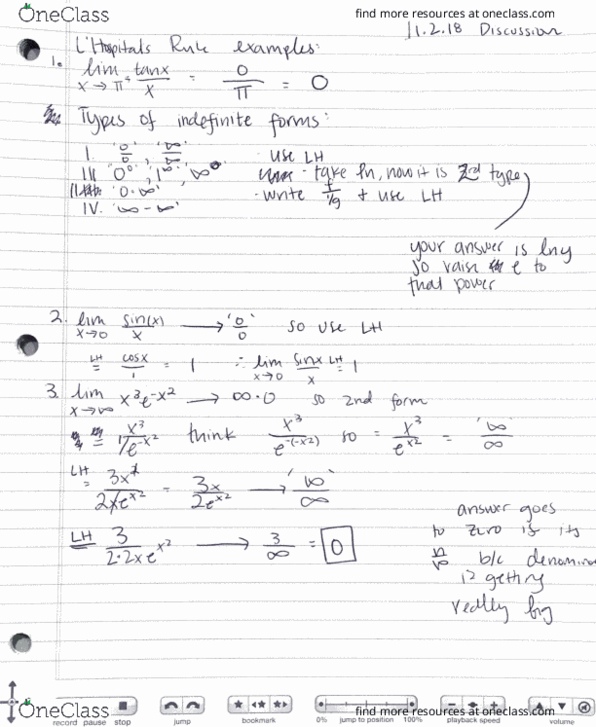 OneClass
find more resources at oneclass.com
11.2.18 Discussion
L'Hopitals Rule examples:
1. lim x→π⁺ tanx/x = 0/π = 0
Types of indefinite forms:
I. '0/0', '∞/∞' · use LH
III '0⁰', '1^∞', '∞⁰' · take ln, now it is 2nd type
II '0·∞' · write f/(1/g) + use LH
IV. '∞-∞'
your answer is lny
so raise e to
that power
2. lim x→0 sin(x)/x → '0/0' so use LH
LH = cosx/1 = 1 ∴ lim x→0 sinx/x LH= 1
3. lim x→∞ x³e^-x² → ∞·0 so 2nd form
= x³/(1/e^-x²) think x³/e^-(-x²) so = x³/e^x² = '∞/∞'
LH = 3x²/2xe^x² = 3x/2e^x² → '∞/∞'
LH = 3/(2·2xe^x²) → 3/∞ = 0
answer goes
to zero if its
n/∞ b/c denomin
is getting
really big
OneClass
find more resources at oneclass.com
record pause stop
jump
bookmark
0% jump to position 100%
playback speed
volume